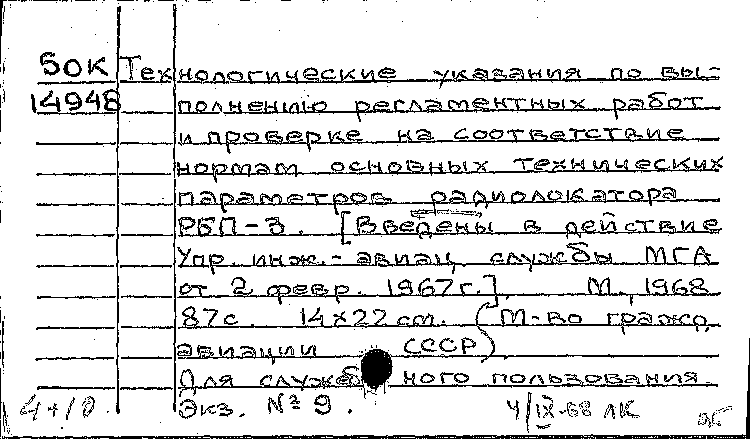 50К Технологические указания по вы-
14948 полнению регламентных работ
и проверке на соответствие
нормам основных технических
параметров радиолокатора
РБП-3. [Введены в действие
Упр. инж.-авиац. службы МГА
от 2 февр. 1967г.]. М., 1968
87с. 14х22 см. (М-во гражд.
авиации СССР).
Для служебного пользования.
4+10. Экз. №9. 4/IX-68 ЛК